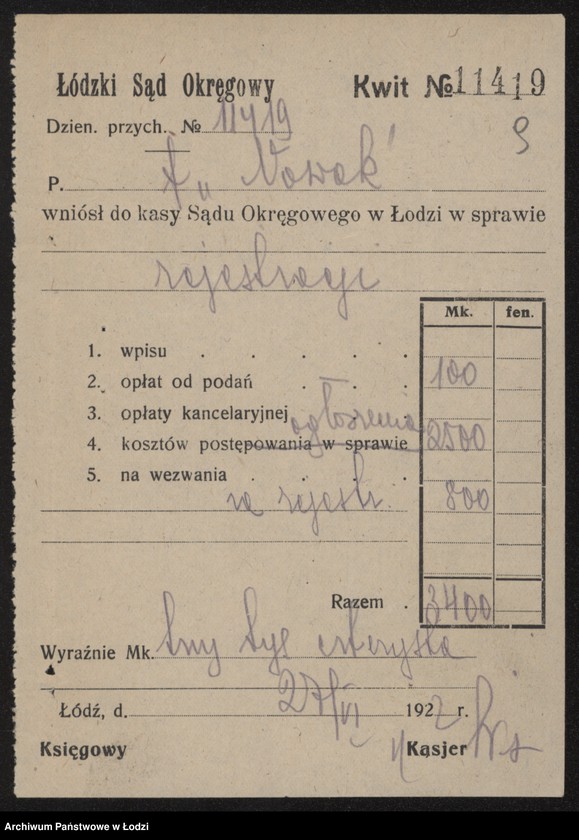 Łódzki Sąd Okręgowy
Kwit № 11419
Dzien. przych. № 11419
9
P. f„ Nowak"
wniósł do kasy Sądu Okręgowego w Łodzi w sprawie
rejestracji
Mk. fen.
1. wpisu . . . .
2. opłat od podań . . . 100
3. opłaty kancelaryjnej ogłoszenia
4. kosztów postępowania w sprawie 2500
5. na wezwania . . . .
za rejestr. 800
Razem . 3400
Wyraźnie Mk. trzy tys czterysta
Łódź, d. 27/VI 1922 r.
Księgowy Kasjer
Archiwum Państwowe w Łodzi